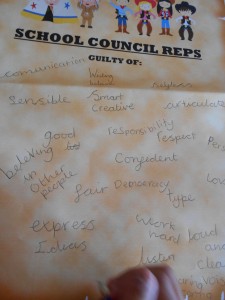 SCHOOL COUNCIL REPS
GUILTY OF:
comunication
Sensible
Smart
Creative
articulate
good
responsibility
Respect
believing
in
other
people
Confedent
fair
Democracy
type
Lov
express
Ideas
work
hard
loud
and
Clea
listin